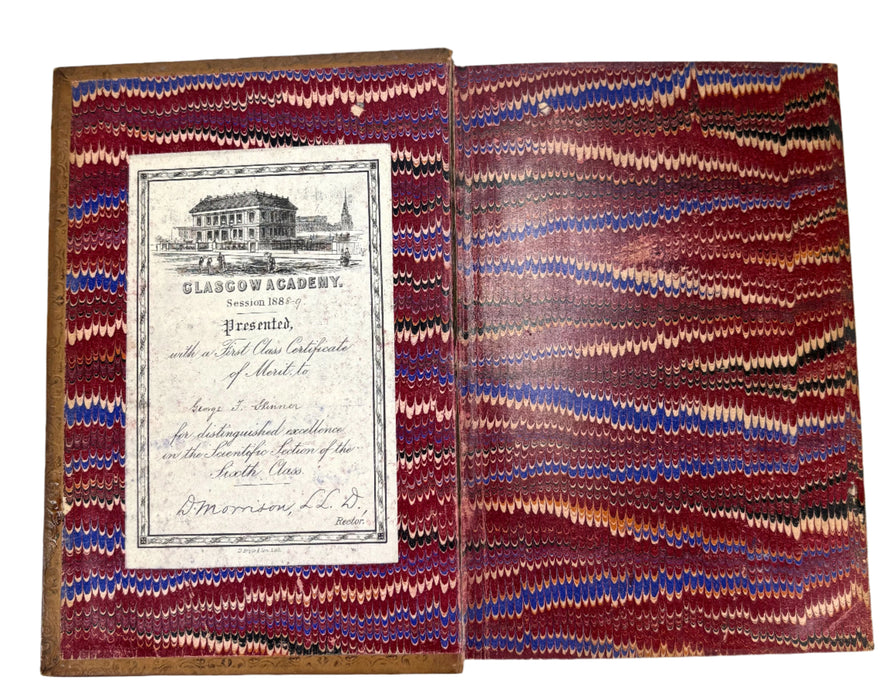 GLASGOW ACADEMY.
Session 1888-9
Presented,
with a First Class Certificate
of Merit, to
George T. Skinner
for distinguished excellence
in the Scientific Section of the
Sixth Class.
D. Morrison, LL.D.,
Rector.